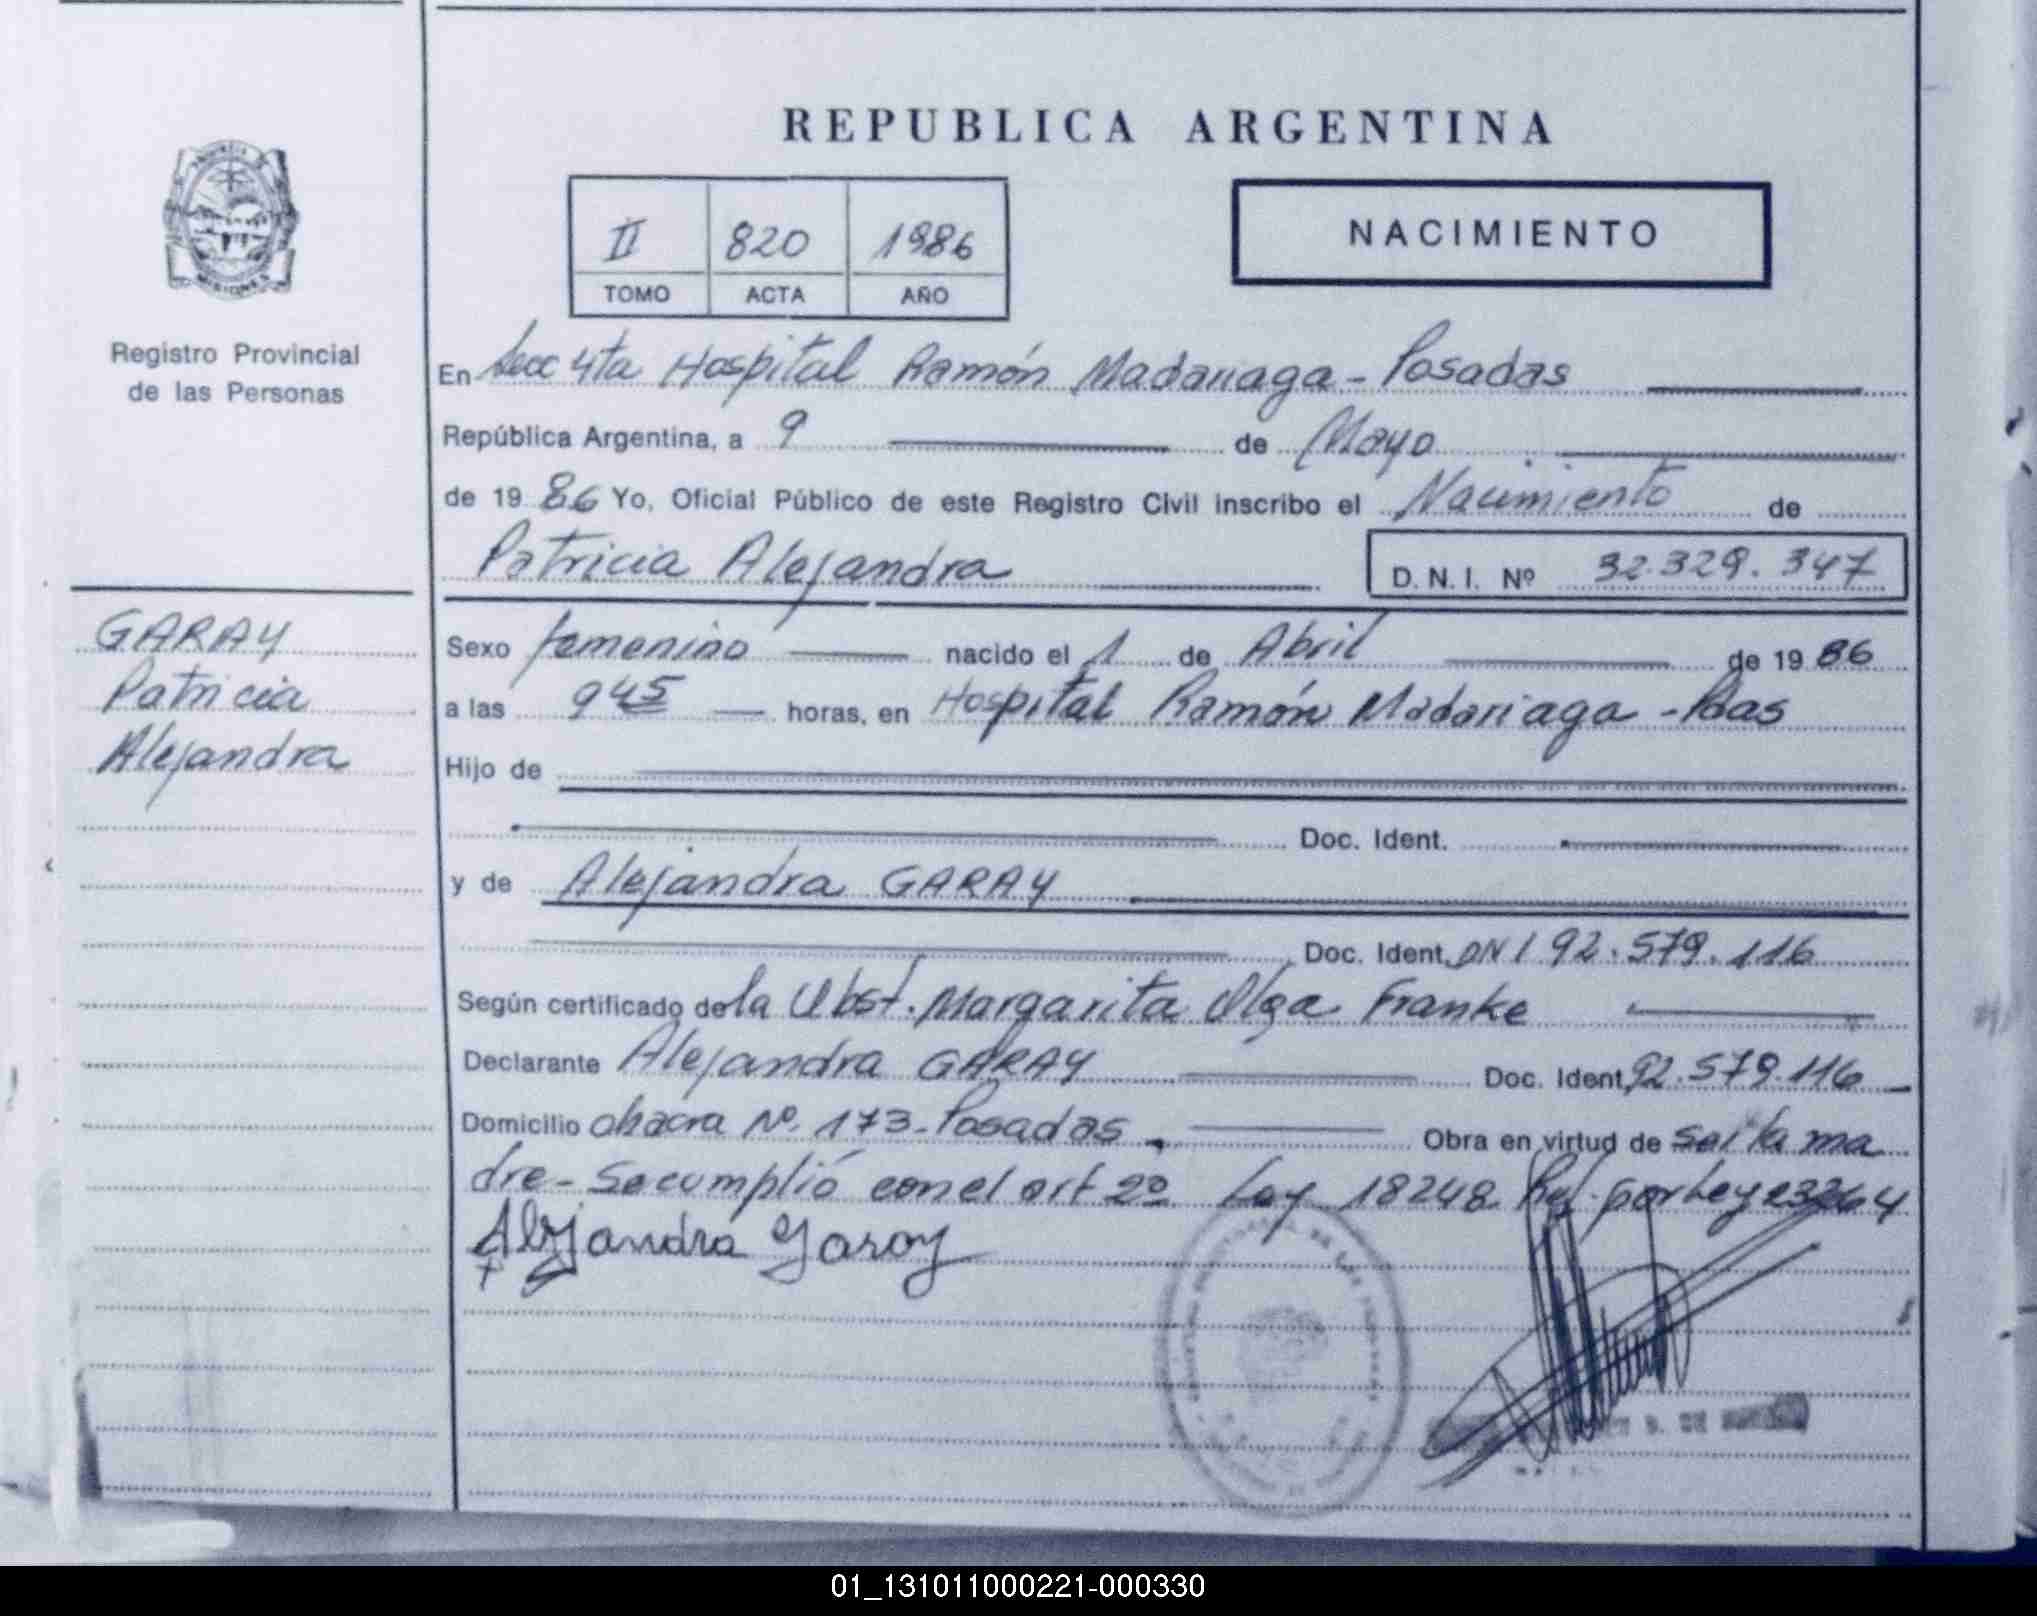 REPUBLICA ARGENTINA
II 820 1986
TOMO ACTA AÑO
NACIMIENTO
Registro Provincial
de las Personas
En Secc 4ta Hospital Ramón Madariaga - Posadas
República Argentina, a 9 de Mayo
de 19 86 Yo, Oficial Público de este Registro Civil inscribo el Nacimiento de
Patricia Alejandra D. N. I. Nº 32.329.347
GARAY
Patricia
Alejandra
Sexo femenino nacido el 1 de Abril de 19 86
a las 9 45 horas, en Hospital Ramón Madariaga - Pdas
Hijo de
Doc. Ident.
y de Alejandra GARAY
Doc. Ident. DNI 92.579.116
Según certificado de la Obst. Margarita Olga Franke
Declarante Alejandra GARAY Doc. Ident. 92.579.116
Domicilio chacra Nº. 173 - Posadas. Obra en virtud de ser la ma
dre - Se cumplió con el art 2º Ley 18248 Ref. por Ley 23264
Alejandra Garay
01_131011000221-000330